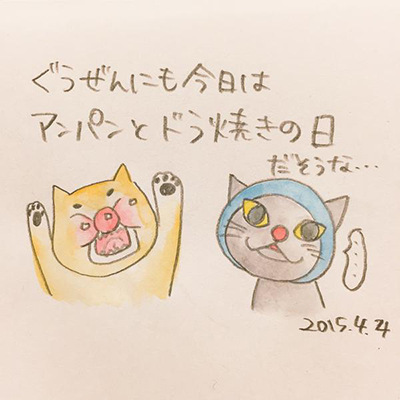 ぐうぜんにも今日は
アンパンとドラ焼きの日
だそうな…
2015.4.4